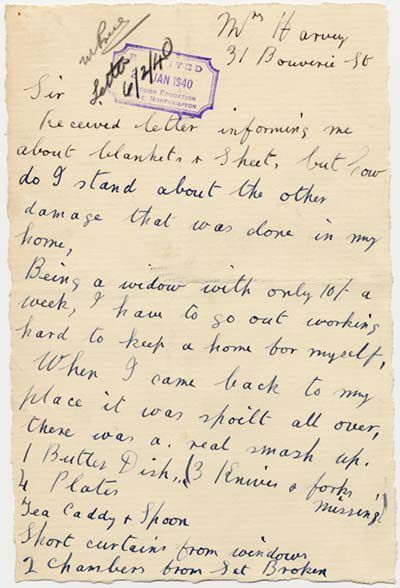 Mrs Harvey
31 Bouverie St
Letter
6/2/40
JAN 1940
EDUCATION
NORTHAMPTON
Sir
Received letter informing me
about blankets & Sheet, but how
do I stand about the other
damage that was done in my
home,
Being a widow with only 10/- a
week, I have to go out working
hard to keep a home for myself,
When I came back to my
place it was spoilt all over,
there was a real smash up.
1 Butter Dish, (3 Knives & forks
4 Plates missing)
Tea Caddy & Spoon
Short curtains from windows
2 Chambers from Set Broken